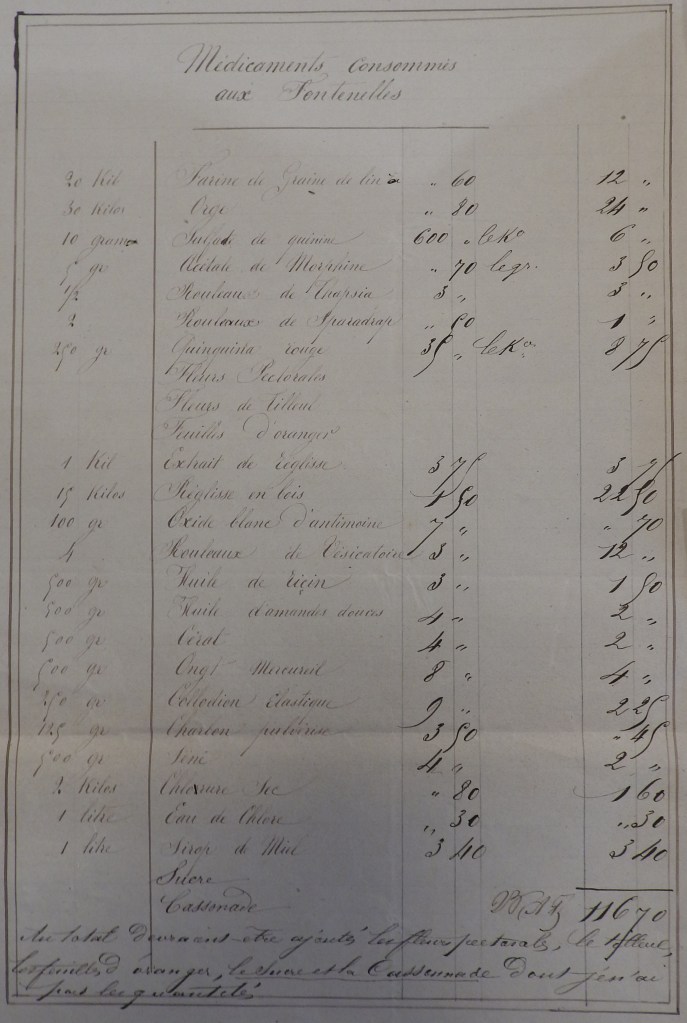 Médicaments consommés
aux Fontenelles
20 Kil Farine de Graine de lin " 60 12 "
30 Kilos Orge " 80 24 "
10 gram Sulfate de quinine 600 " le Ko 6 "
5 gr Acétate de Morphine " 70 le gr. 3 50
1/2 Rouleaux de Thapsia 3 " 3 "
2 Rouleaux de Sparadrap " 50 1 "
250 gr Quinquina rouge 35 " le Ko 8 75
Fleurs Pectorales
Fleurs de Tilleul
Feuilles d'oranger
1 Kil Extrait de Réglisse 3 75 3 75
15 Kilos Réglisse en bois 1 50 22 50
100 gr Oxide blanc d'antimoine 7 " " 70
4 Rouleaux de Vésicatoire 3 " 12 "
500 gr Huile de riçin 3 " 1 50
500 gr Huile d'amandes douces 4 " 2 "
500 gr Cérat 4 " 2 "
500 gr Ongt Mercureil 8 " 4 "
250 gr Collodion Elastique 9 " 2 25
125 gr Charbon pulvérisé 3 50 " 45
500 gr Séné 4 " 2 "
2 Kilos Chlorure Sec " 80 1 60
1 litre Eau de Chlore " 30 " 30
1 litre Sirop de Miel 3 40 3 40
Sucre
Cassonade 116 70
Au total devraient être ajoutés les fleurs pectorales, le tilleul,
les feuilles d'oranger, le sucre et la Cassonnade dont je n'ai
pas les quantités